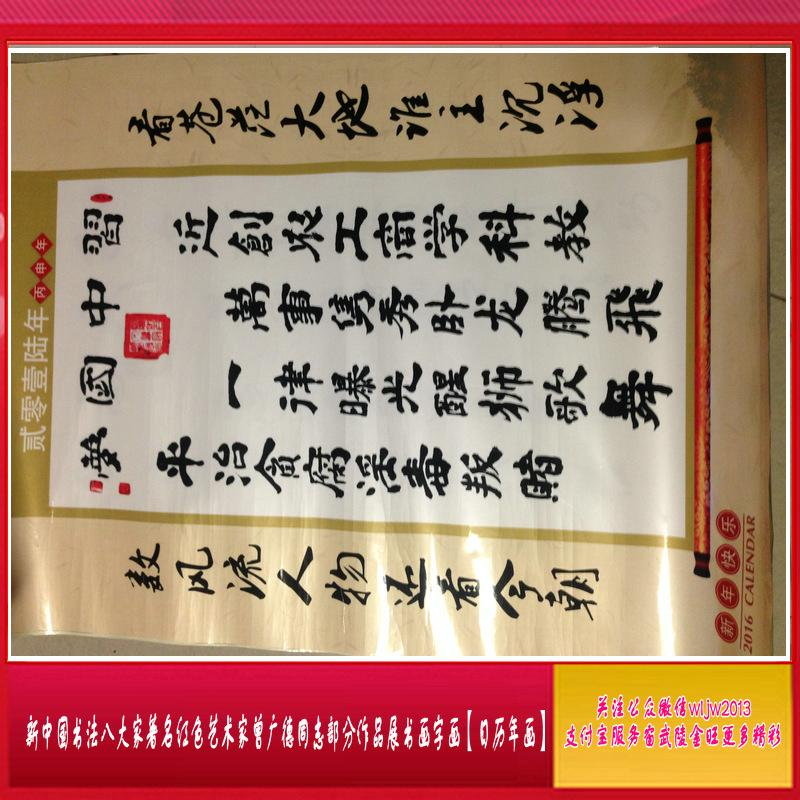 贰零壹陆年
丙申年
習中國夢
看苍茫大地谁主沉浮
近創农工商学科教
萬事隽秀卧龙腾飛
一律曝光醒狮歌舞
平治贪腐淫毒叛赌
数风流人物还看今朝
新年快乐
2016 CALENDAR
新中国书法八大家著名红色艺术家曾广德同志部分作品展书画字画【日历年画】
关注公众微信wljw2013
支付宝服务窗武陵金旺更多精彩